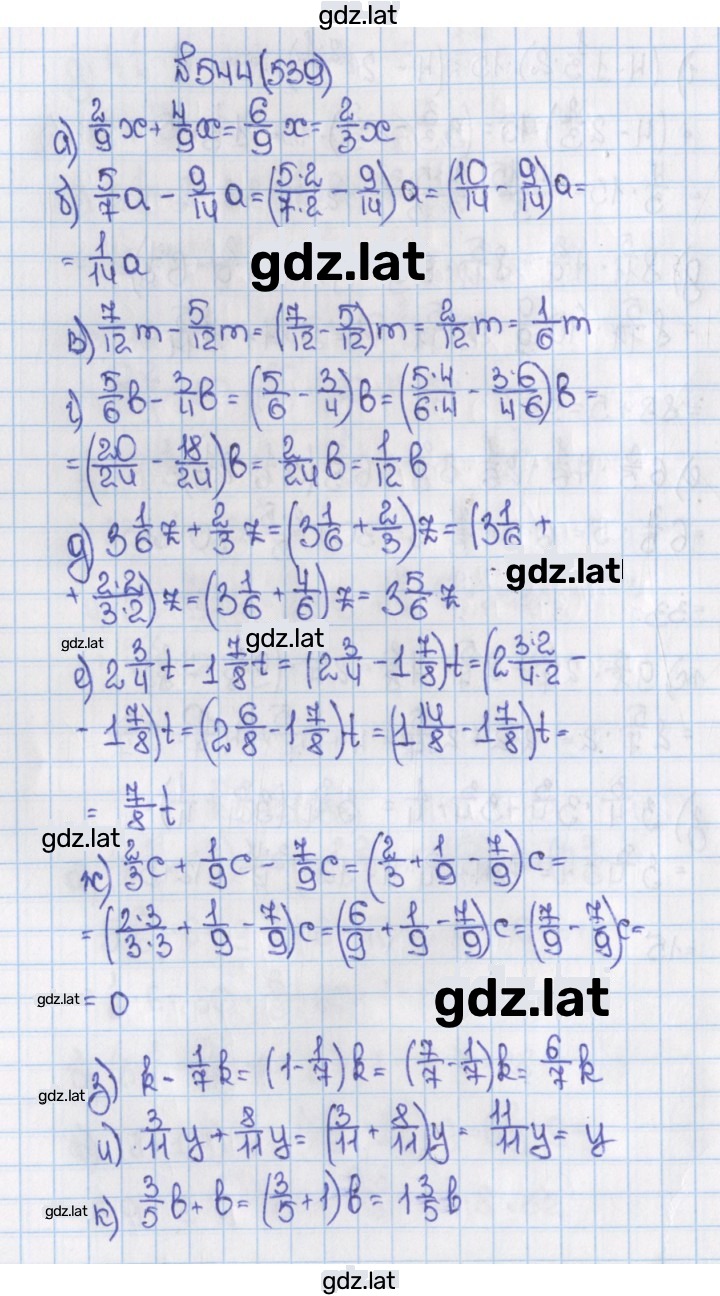 gdz.lat
№544(539)
а) 2/9 x + 4/9 x = 6/9 x = 2/3 x
б) 5/7 a - 9/14 a = (5·2/7·2 - 9/14) a = (10/14 - 9/14) a =
= 1/14 a
gdz.lat
в) 7/12 m - 5/12 m = (7/12 - 5/12) m = 2/12 m = 1/6 m
г) 5/6 b - 3/4 b = (5/6 - 3/4) b = (5·4/6·4 - 3·6/4·6) b =
= (20/24 - 18/24) b = 2/24 b = 1/12 b
д) 3 1/6 z + 2/3 z = (3 1/6 + 2/3) z = (3 1/6 +
gdz.lat
+ 2·2/3·2) z = (3 1/6 + 4/6) z = 3 5/6 z
gdz.lat
gdz.lat
е) 2 3/4 t - 1 7/8 t = (2 3/4 - 1 7/8) t = (2 3·2/4·2 -
- 1 7/8) t = (2 6/8 - 1 7/8) t = (1 14/8 - 1 7/8) t =
= 7/8 t
gdz.lat
ж) 2/3 c + 1/9 c - 7/9 c = (2/3 + 1/9 - 7/9) c =
= (2·3/3·3 + 1/9 - 7/9) c = (6/9 + 1/9 - 7/9) c = (7/9 - 7/9) c =
gdz.lat
= 0
gdz.lat
з) k - 1/7 k = (1 - 1/7) k = (7/7 - 1/7) k = 6/7 k
gdz.lat
и) 3/11 y + 8/11 y = (3/11 + 8/11) y = 11/11 y = y
к) 3/5 b + b = (3/5 + 1) b = 1 3/5 b
gdz.lat
gdz.lat